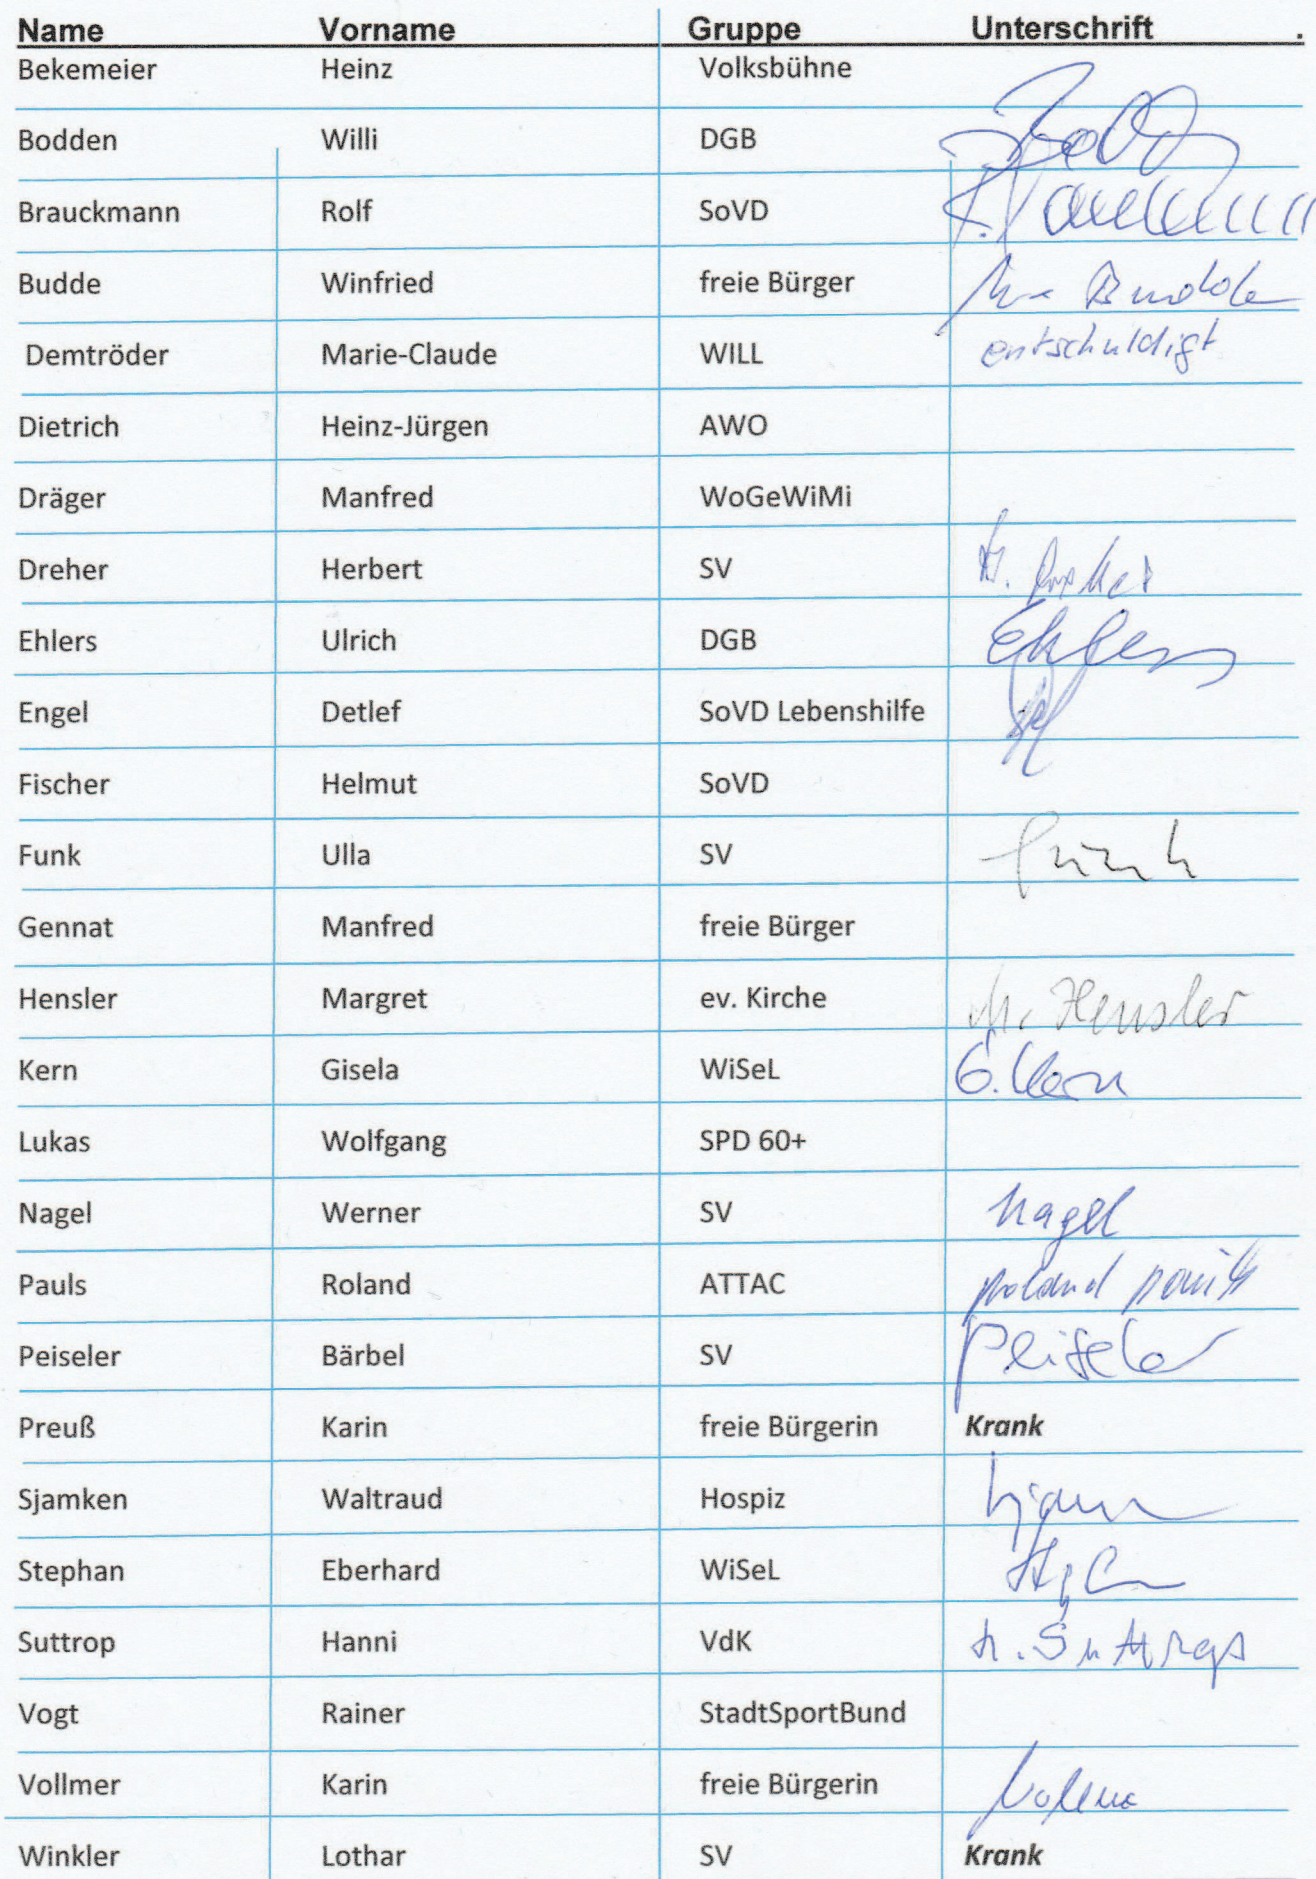 Name Vorname Gruppe Unterschrift .
Bekemeier Heinz Volksbühne
Bodden Willi DGB
Brauckmann Rolf SoVD
Budde Winfried freie Bürger Budde
Demtröder Marie-Claude WILL entschuldigt
Dietrich Heinz-Jürgen AWO
Dräger Manfred WoGeWiMi
Dreher Herbert SV
Ehlers Ulrich DGB Ehlers
Engel Detlef SoVD Lebenshilfe
Fischer Helmut SoVD
Funk Ulla SV Funk
Gennat Manfred freie Bürger
Hensler Margret ev. Kirche M. Hensler
Kern Gisela WiSeL G. Kern
Lukas Wolfgang SPD 60+
Nagel Werner SV Nagel
Pauls Roland ATTAC Roland Pauls
Peiseler Bärbel SV Peiseler
Preuß Karin freie Bürgerin Krank
Sjamken Waltraud Hospiz
Stephan Eberhard WiSeL
Suttrop Hanni VdK H. Suttrop
Vogt Rainer StadtSportBund
Vollmer Karin freie Bürgerin
Winkler Lothar SV Krank